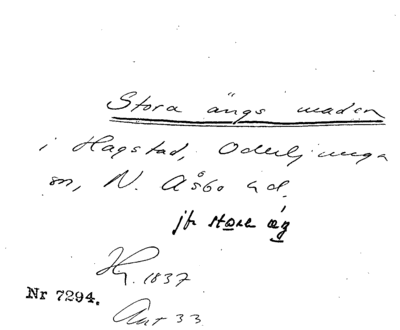 Stora ängs maden
i Hagstad, Oderljunga
sn, N. Åsbo hd.
jfr store æg
Hg. 1837
Nr 7294.
Ant 33